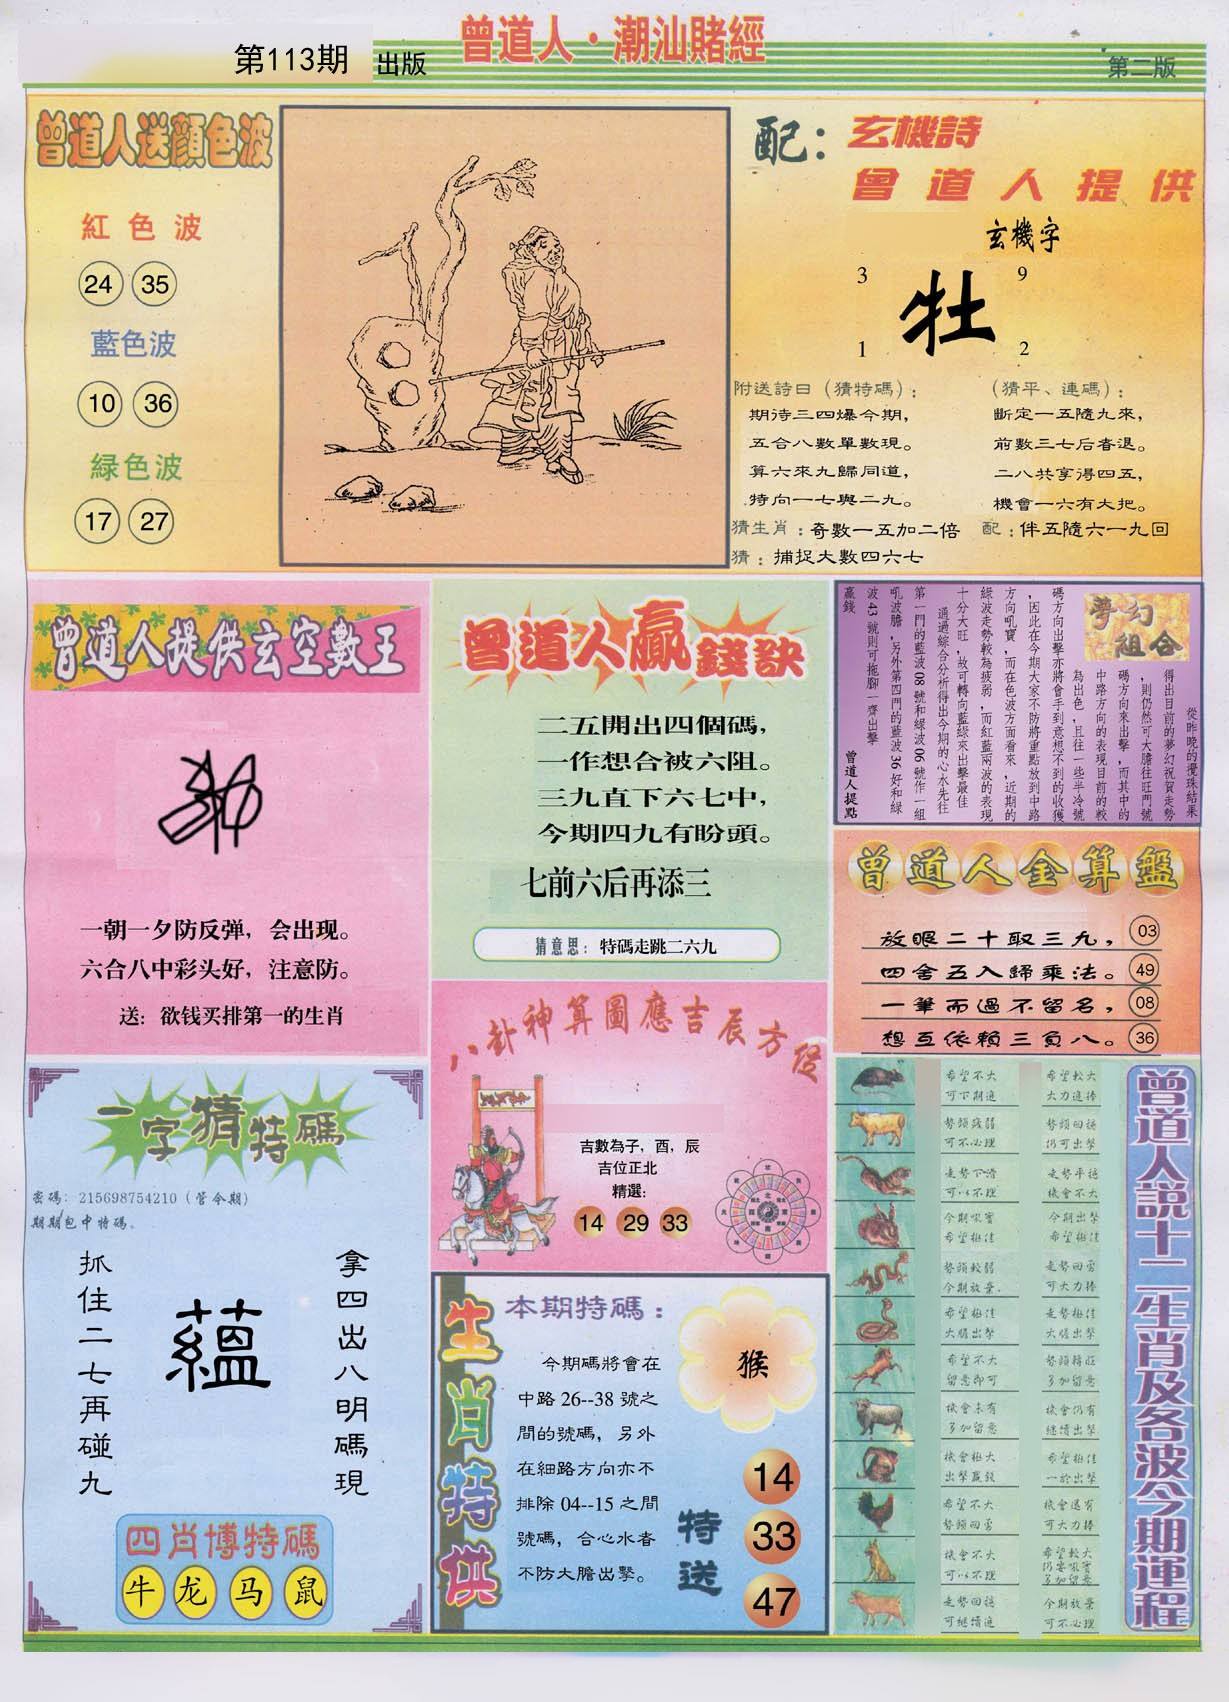 第113期 出版
曾道人·潮汕賭經
第二版
曾道人送顔色波
紅色波
24 35
藍色波
10 36
緑色波
17 27
配：玄機詩
曾道人提供
玄機字
3 9
牡
1 2
附送詩曰（猜特碼）：
期待三四爆今期，
五合八數單數現。
算六來九歸同道，
特向一七與二九。
（猜平、連碼）：
斷定一五隨九來，
前數三七后者退。
二八共享得四五，
機會一六有大把。
猜生肖：奇數一五加二倍
配：伴五隨六一九回
猜：捕捉大數四六七
曾道人提供玄空數王
一朝一夕防反弹，会出现。
六合八中彩头好，注意防。
送：欲钱买排第一的生肖
曾道人贏錢訣
二五開出四個碼，
一作想合被六阻。
三九直下六七中，
今期四九有盼頭。
七前六后再添三
猜意思：特碼走跳二六九
夢幻組合
從昨晚的攪珠結果
得出目前的夢幻祝賀走勢
，則仍然可大膽往旺門號
碼方向來出擊，而其中的
中路方向的表現目前的較
為出色，且往一些半冷號
碼方向出擊亦將會手到意想不到的收獲
，因此在今期大家不防將重點放到中路
方向吼寶，而在色波方面看來，近期的
綠波走勢較為疲弱，而紅藍兩波的表現
十分大旺，故可轉向藍綠來出擊最佳
通過綜合分析得出今期的心水先往
第一門的藍波08號和綠波06號作一組
吼波膽，另外第四門的藍波36好和綠
波43號則可拖腳一齊出擊
贏錢
曾道人提點
曾道人金算盤
放眼二十取三九， 03
四舍五入歸乘法。 49
一筆而過不留名， 08
想互依賴三負八。 36
八卦神算圖應吉辰方位
吉數為子，酉，辰
吉位正北
精選:
14 29 33
一字猜特碼
密碼：215698754210（管令期）
期期包中特碼。
拿四出八明碼現
蘊
抓住二七再碰九
四肖博特碼
牛 龙 马 鼠
生肖特供
本期特碼：
今期碼將會在
中路26--38號之
間的號碼，另外
在細路方向亦不
排除04--15之間
號碼，合心水者
不防大膽出擊。
猴
特送
14
33
47
曾道人説十二生肖及各波今期運程
希望不大
可下期進
希望較大
大力進捧
勢頭疲弱
可不必理
勢頭回穩
仍可出擊
走勢下滑
可以不理
走勢平穩
機會不大
今期吼寳
希望極佳
今期出擊
希望極佳
勢頭較弱
今期放棄.
走勢回勇
可大力捧
希望極佳
大膽出擊
走勢極佳
大膽出擊
希望不大
留意即可
勢頭轉旺
多加留意
機會未有
多加留意
機會仍有
繼續出擊
機會極大
出擊贏錢
希望極佳
一於出擊
希望不大
勢頭回勇
機會還有
可大力捧
機會不大
可以不理
希望較大
仍要吼寳
多加留意
走勢回穩
可繼續進
今期放棄
可不必理